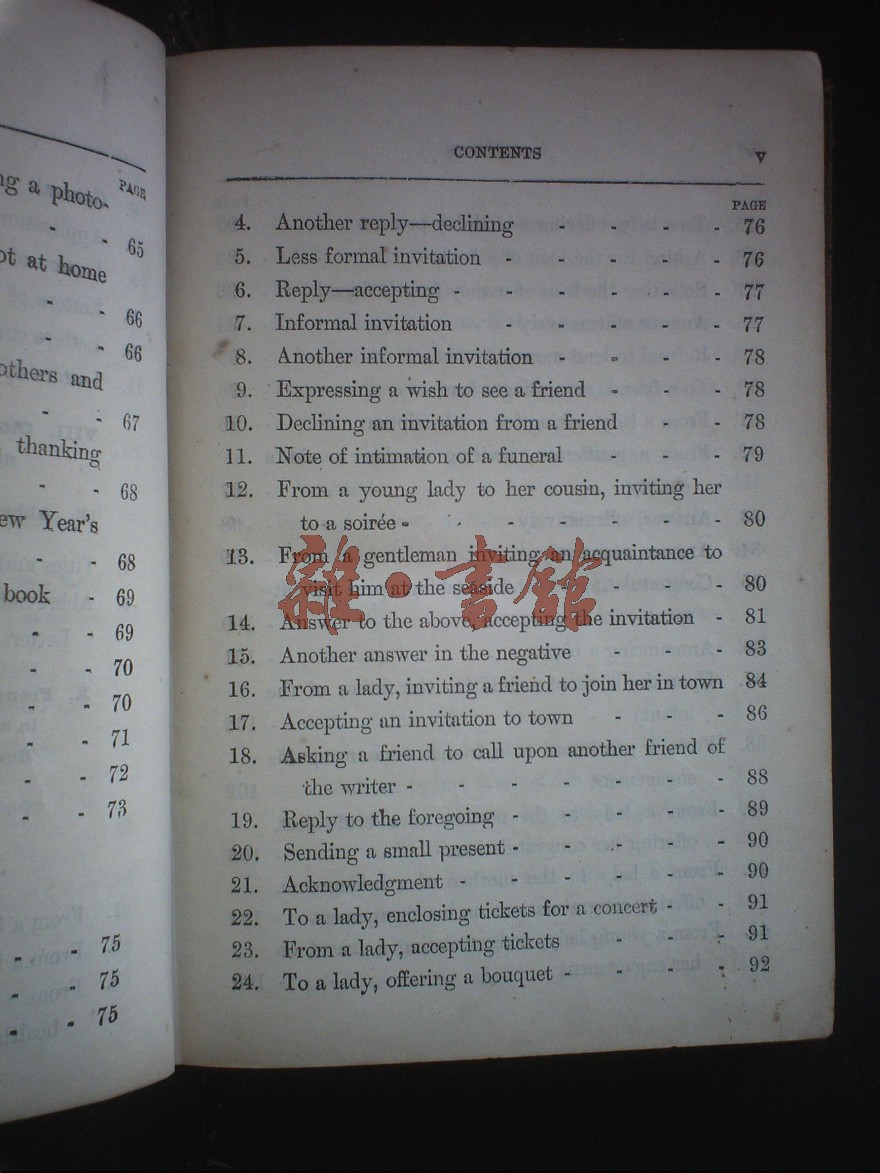 PAGE
ng a photo-
- - 65
ot at home
- - 66
- - 66
others and
- - 67
, thanking
- - 68
ew Year's
- - 68
book - 69
- - 69
- - 70
- - 70
- - 71
- - 72
- - 73
- - 75
- - 75
- - 75
CONTENTS v
PAGE
4. Another reply—declining - - - - 76
5. Less formal invitation - - - - - 76
6. Reply—accepting - - - - - - 77
7. Informal invitation - - - - - 77
8. Another informal invitation - - - - 78
9. Expressing a wish to see a friend - - - 78
10. Declining an invitation from a friend - - 78
11. Note of intimation of a funeral - - - 79
12. From a young lady to her cousin, inviting her
to a soirée - - - - - - - 80
13. From a gentleman inviting an acquaintance to
visit him at the seaside - - - - - 80
14. Answer to the above, accepting the invitation - 81
15. Another answer in the negative - - - 83
16. From a lady, inviting a friend to join her in town 84
17. Accepting an invitation to town - - - 86
18. Asking a friend to call upon another friend of
the writer - - - - - - - 88
19. Reply to the foregoing - - - - - 89
20. Sending a small present - - - - - 90
21. Acknowledgment - - - - - - 90
22. To a lady, enclosing tickets for a concert - - 91
23. From a lady, accepting tickets - - - 91
24. To a lady, offering a bouquet - - - - 92
雜·書館